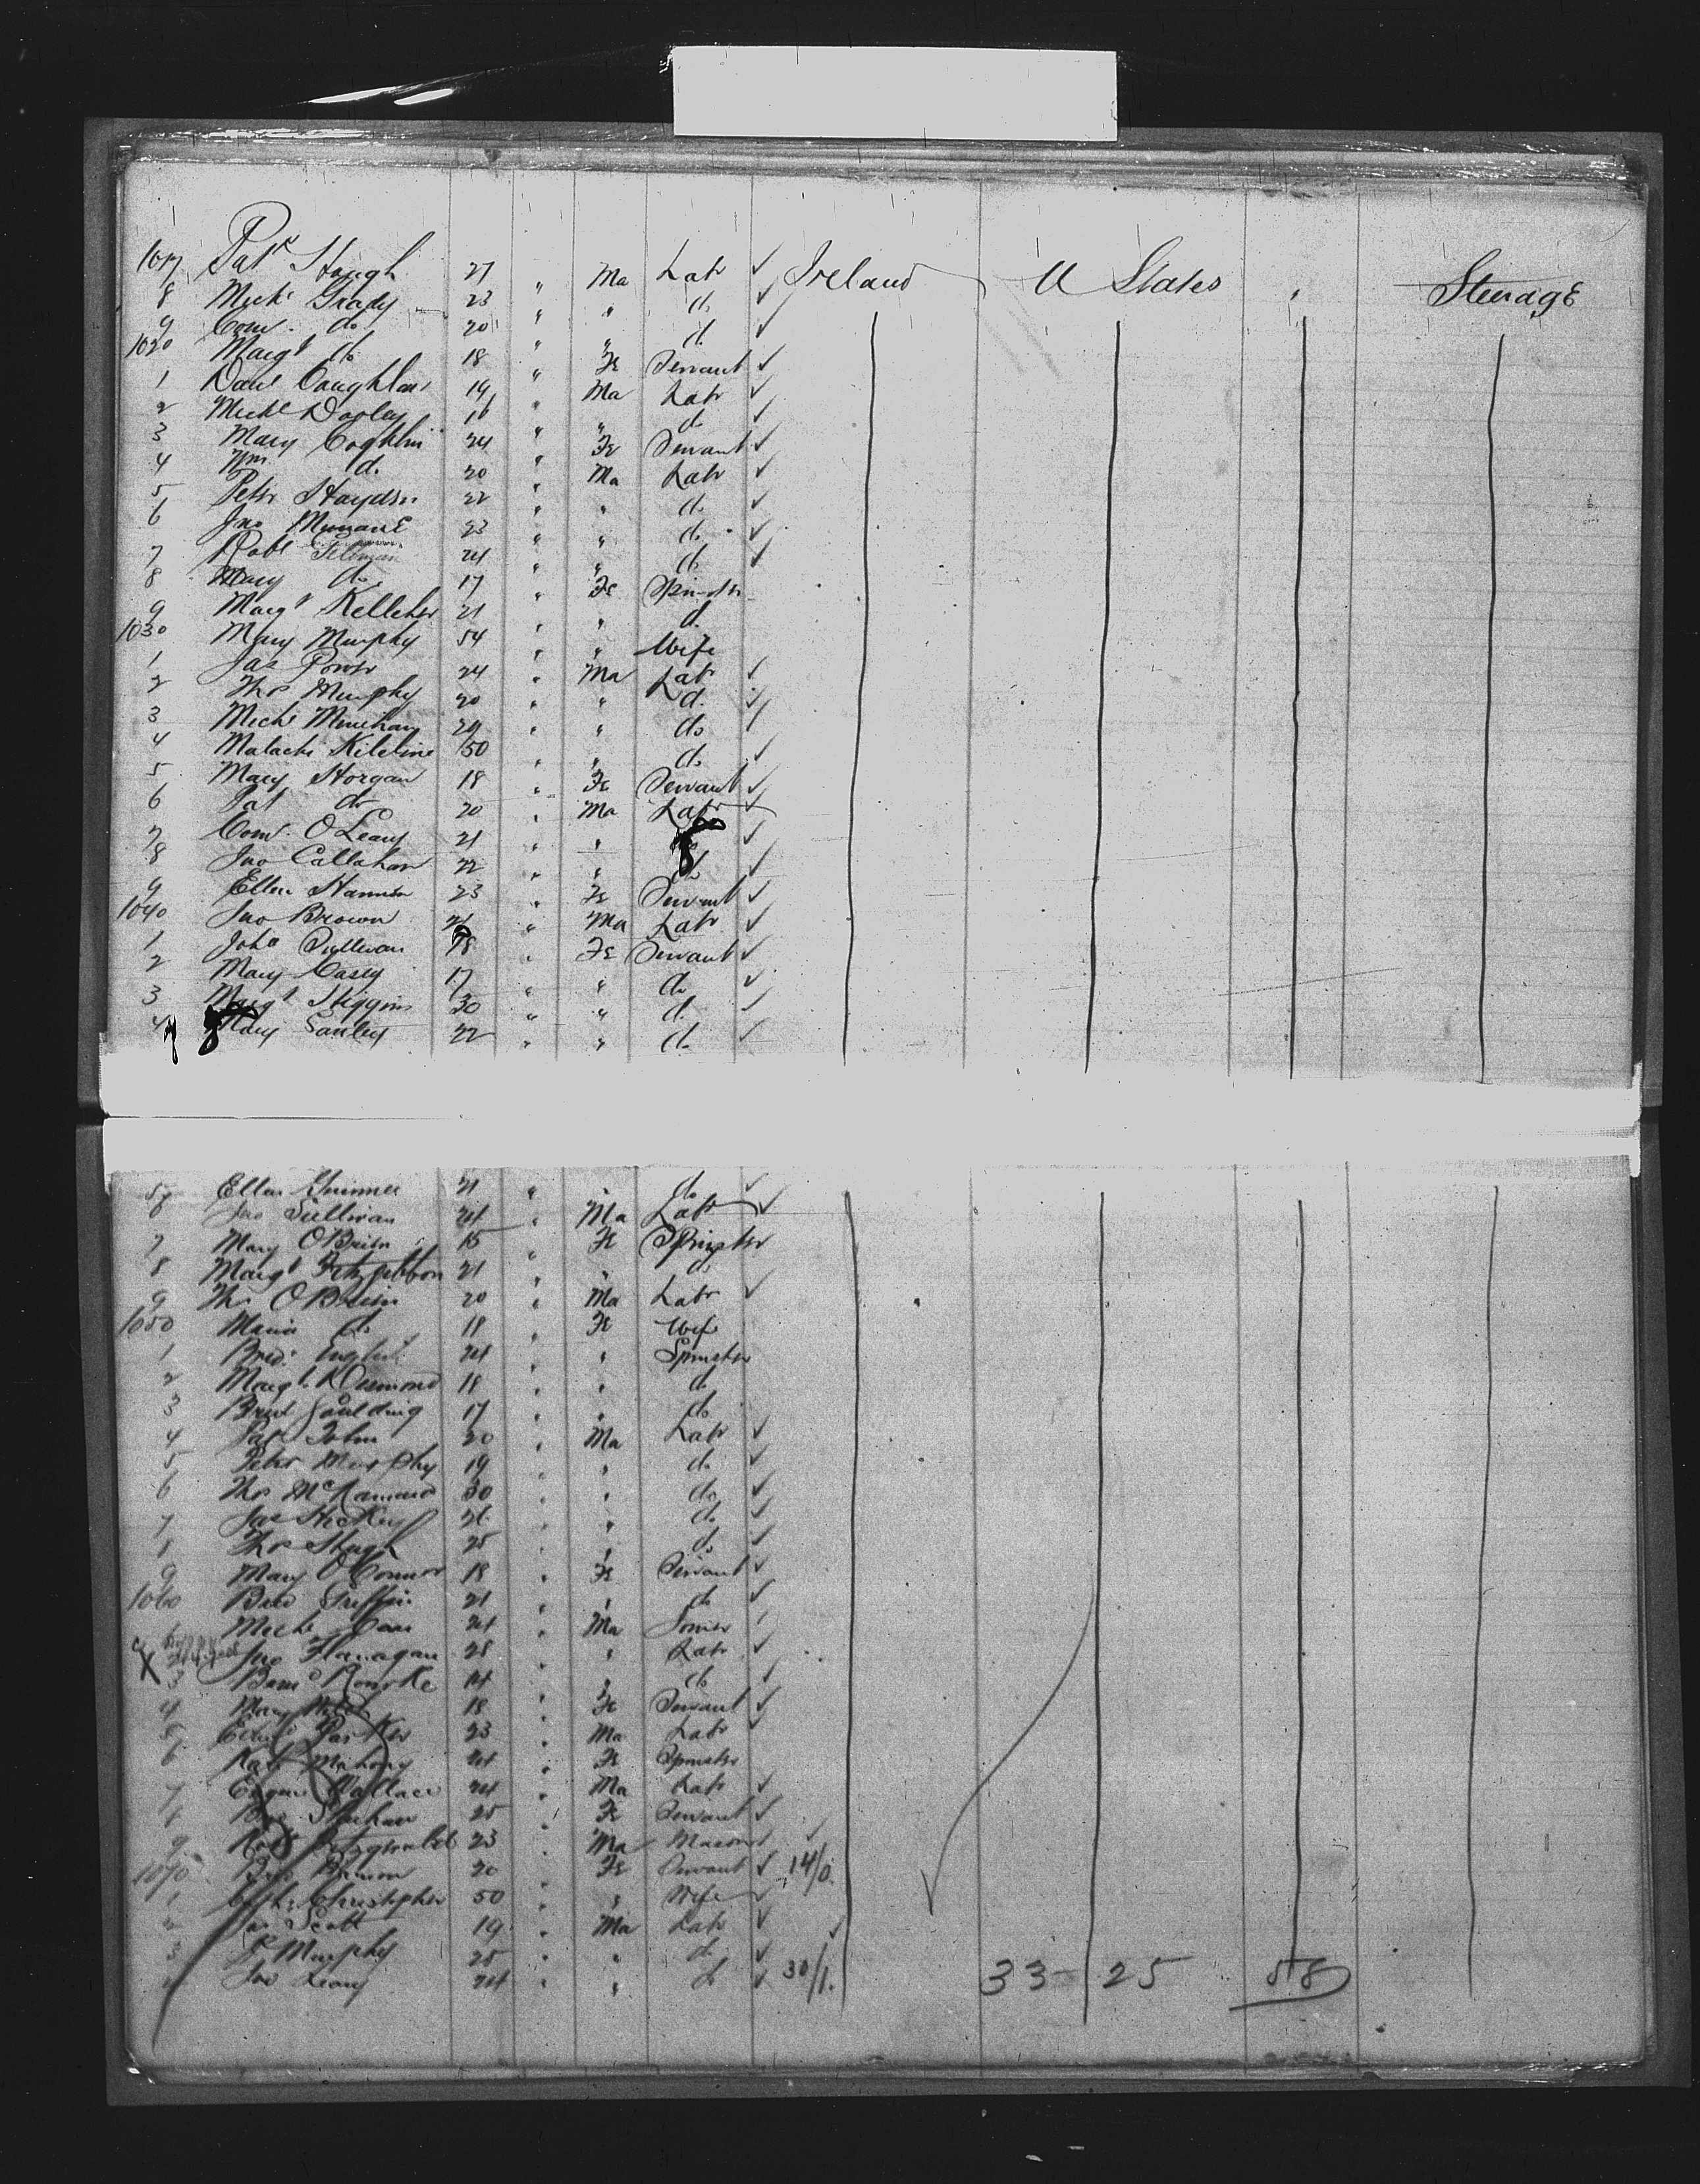 1017 Pat Hough 27 " Ma Labr ✓ Ireland U States " Steerage
8 Mich Grady 23 " " do ✓
9 Corn. do 20 " " d. ✓
1020 Margt do 18 " Fe Servant ✓
1 Danl Coughlan 19 " Ma Labr ✓
2 Michl Dooley 16 " " do ✓
3 Mary Coghlin 24 " Fe Servant ✓
4 Wm d. 20 " Ma Labr ✓
5 Peter Hayden 22 " " do ✓
6 Jno 23 " " do ✓
7 Robt 24 " " do ✓
8 Mary do 17 " Fe Spinster
9 Margt Kelleher 21 " " d.
1030 Mary Murphy 54 " " Wife
1 Jas Power 24 " Ma Labr ✓
2 Thos Murphy 20 " " d. ✓
3 Michl Minihan 29 " " do ✓
4 Malachi 50 " " do ✓
5 Mary Horgan 18 " Fe Servant ✓
6 Pat do 20 " Ma Labr ✓
7 Corn. O Leary 21 " " ✓
8 Jno Callahan 22 " " do ✓
9 Ellen 23 " Fe Servant ✓
1040 Jno Brown " Ma Labr ✓
1 Joha Sullivan 18 " Fe Servant ✓
2 Mary Casey 17 " " do ✓
3 Margt Higgins 30 " " d. ✓
4 Mary 22 " " d. ✓
5 Ellen 21 " " do ✓
6 Jno Sullivan 24 " Ma Labr ✓
7 Mary OBrien 15 " Fe Spinster
8 Margt Fitzgibbon 21 " " do
9 Thos OBrien 20 " Ma Labr ✓
1050 Maria do 18 " Fe Wife
1 Brid. English 24 " " Spinster
2 Margt Desmond 18 " " do
3 Brid Goulding 17 " " do
4 Pat Tobin 20 " Ma Labr ✓
5 Peter Murphy 19 " " d. ✓
6 Thos McNamara 30 " " do ✓
7 Jas Hickey 26 " " do ✓
8 Thos 25 " " do ✓
9 Mary O Connor 18 " Fe Servant ✓
1060 Brid Griffin 21 " " do ✓
Michl 24 " Ma
X Jno Flanagan 28 " " Labr ✓
3 Rourke 14 " " do ✓
4 Mary 18 " Fe Servant ✓
5 Edwd Parker 23 " Ma Labr ✓
6 Kate Mahony 24 " Fe Spinster
7 Wallace 24 " Ma Labr ✓
8 25 " Fe Servant ✓
9 Robt Fitzgerald 23 " Ma Mason ✓
1070 20 " Fe Servant ✓ 14/0.
1 Christopher 50 " " Wife ✓
2 Jas Scott 19 " Ma Labr ✓
3 Murphy 25 " " do ✓
4 Jno Leary 24 " " do ✓ 30/1. 33 25 58